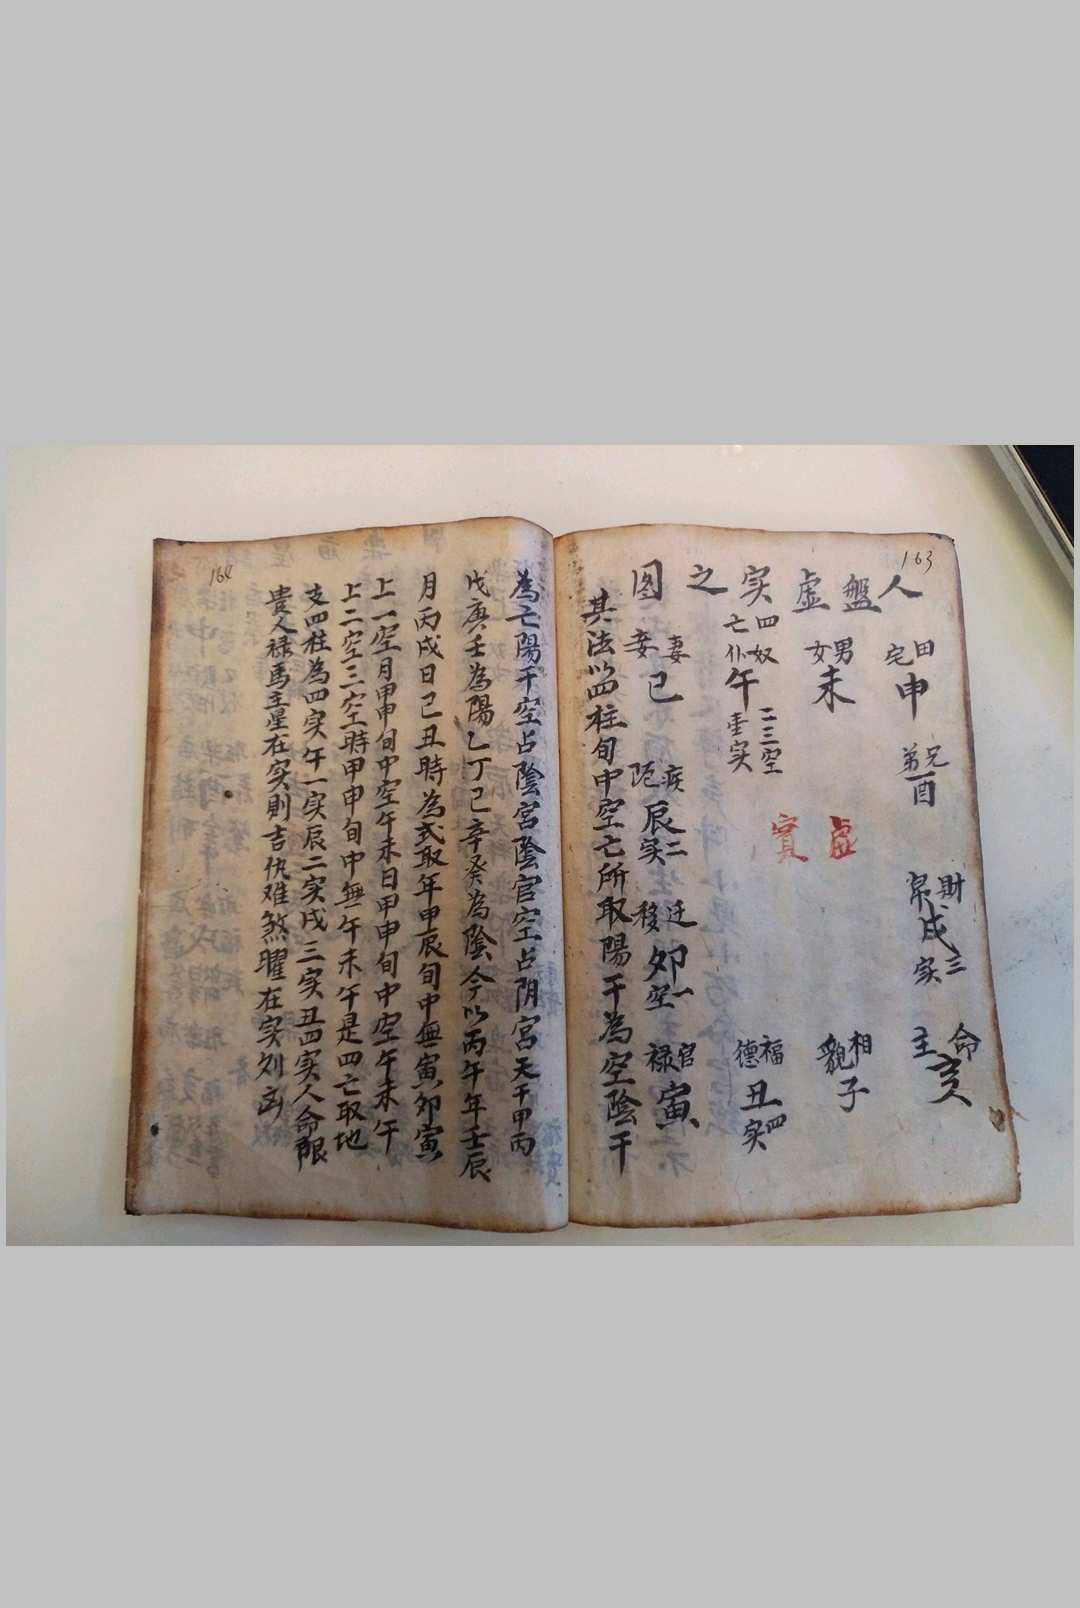 163
人盤虛实之图
田宅
申
兄弟
酉
財帛
戌三
实
命主
亥
男女
未
相貌
子
四亡
奴仆
午
二三空
壹实
福德
丑四
实
虛實
妻妾
巳
疾阨
辰二
实
迁移
卯一
空
官禄
寅
其法以四柱旬中空亡所取陽干為空陰干
164
為亡陽干空占陰宮陰官空占阴宮天干甲丙
戊庚壬為陽乙丁己辛癸為陰今以丙午年壬辰
月丙戌日己丑時為式取年甲辰旬中無寅卯寅
上一空月甲申旬中空午未日甲申旬中空午未午
上二空三空時甲申旬中無午未午是四亡取地
支四柱為四实午一实辰二实戌三实丑四实人命限
貴人禄馬主星在实則吉仇难煞曜在实列凶